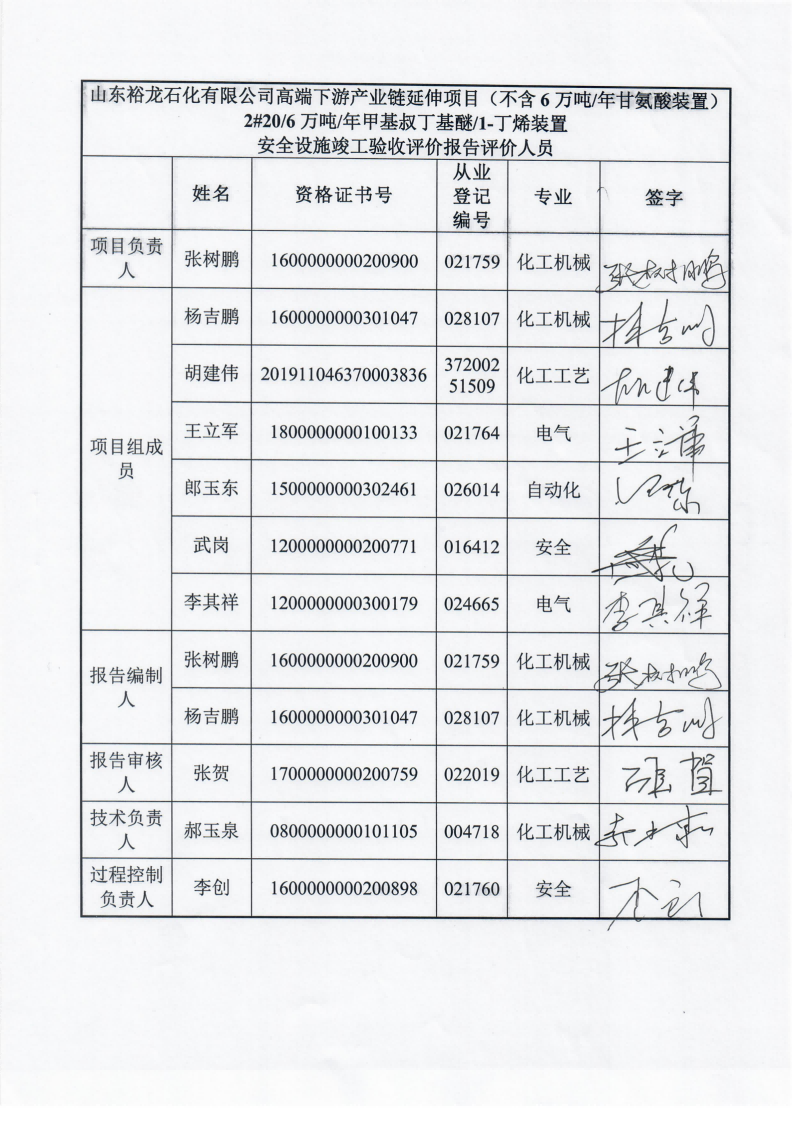 山东裕龙石化有限公司高端下游产业链延伸项目（不含 6 万吨/年甘氨酸装置）
2#20/6 万吨/年甲基叔丁基醚/1-丁烯装置
安全设施竣工验收评价报告评价人员
姓名 资格证书号 从业登记编号 专业 签字
项目负责人 张树鹏 1600000000200900 021759 化工机械 张树鹏
项目组成员 杨吉鹏 1600000000301047 028107 化工机械
胡建伟 201911046370003836 37200251509 化工工艺 胡建伟
王立军 1800000000100133 021764 电气 王立军
郎玉东 1500000000302461 026014 自动化
武岗 1200000000200771 016412 安全
李其祥 1200000000300179 024665 电气 李其祥
报告编制人 张树鹏 1600000000200900 021759 化工机械 张树鹏
杨吉鹏 1600000000301047 028107 化工机械
报告审核人 张贺 1700000000200759 022019 化工工艺 张贺
技术负责人 郝玉泉 0800000000101105 004718 化工机械
过程控制负责人 李创 1600000000200898 021760 安全 李创